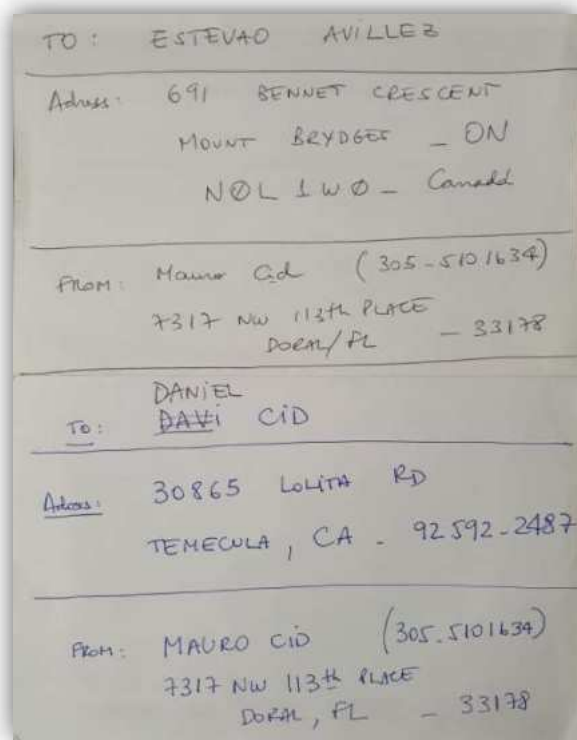 TO: ESTEVAO AVILLEZ
Adress: 691 BENNET CRESCENT
MOUNT BRYDGES _ ON
NØL 1WØ _ Canadá
FROM: Mauro Cid (305-5101634)
7317 NW 113th PLACE
DORAL/FL - 33178
DANIEL
TO: DAVI CiD
Adress: 30865 LOLITA RD
TEMECULA, CA - 92592-2487
FROM: MAURO CiD (305.5101634)
7317 NW 113th PLACE
DORAL, FL - 33178